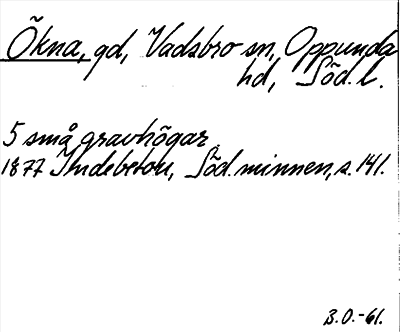 Ökna, gd, Vadsbro sn, Oppunda
hd, Söd. l.
5 små gravhögar
1877 Indebetou, Söd. minnen, s. 141.
B.O.-61.